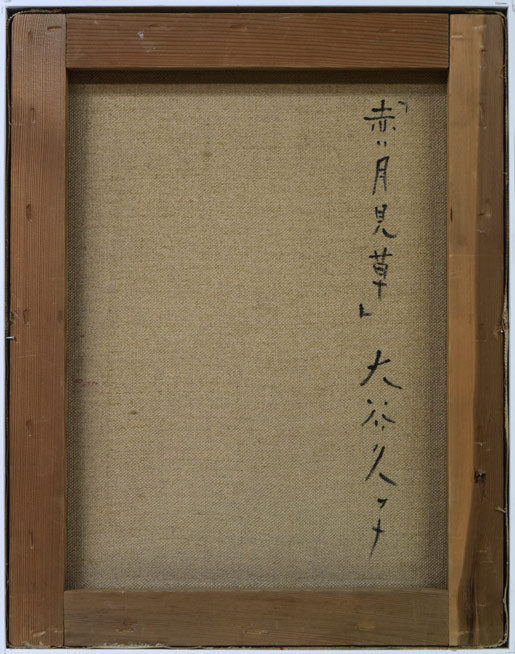 「赤い月見草」 大谷久子